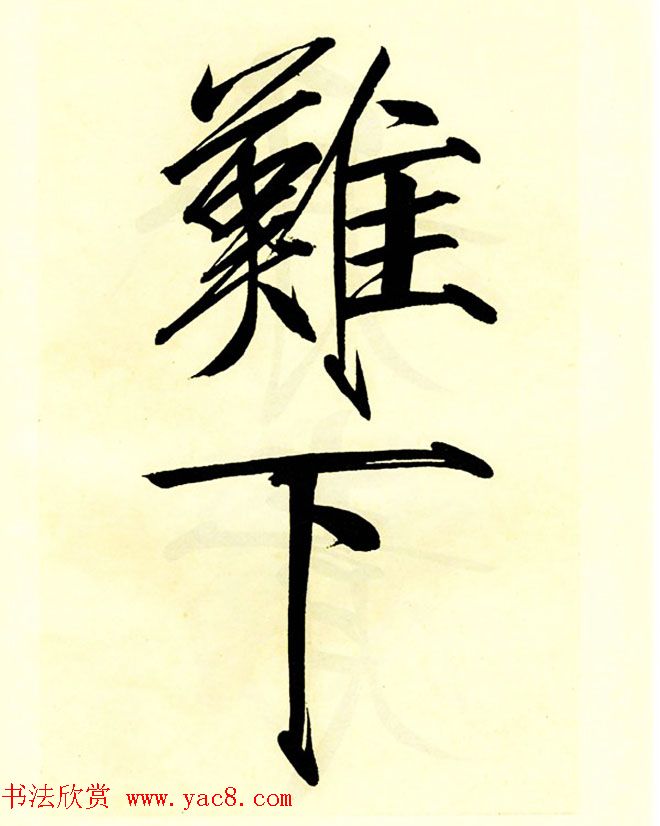 難
下
书法欣赏 www.yac8.com